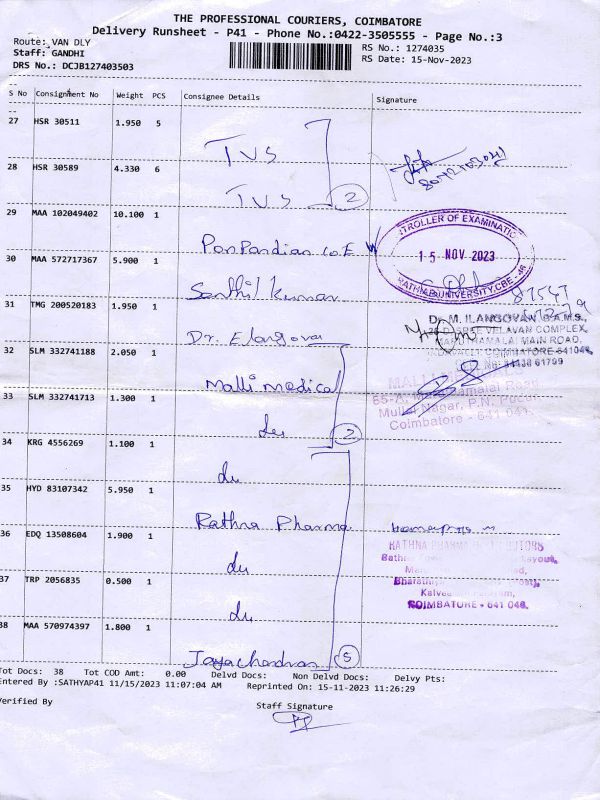 THE PROFESSIONAL COURIERS, COIMBATORE
Delivery Runsheet - P41 - Phone No.:0422-3505555 - Page No.:3
Route: VAN DLY
RS No.: 1274035
Staff: GANDHI
RS Date: 15-Nov-2023
DRS No.: DCJB127403503
S No Consignment No Weight PCS Consignee Details Signature
27 HSR 30511 1.950 5
TVS
28 HSR 30589 4.330 6
TVS 2
29 MAA 102049402 10.100 1
TROLLER OF EXAMINATIO
15 NOV 2023
30 MAA 572717367 5.900 1
Senthil kumar
31 TMG 200520183 1.950 1
Dr. M. ILANGOVAN B.A.M.S.,
VELAVAN COMPLEX,
MAIN ROAD,
Dr. Elangovan
COIMBATORE-641046,
32 SLM 332741188 2.050 1
Malli medical
65-A, Road
Nagar, P.N. Pudur
Coimbatore - 641 041.
33 SLM 332741713 1.300 1
du 2
34 KRG 4556269 1.100 1
du
35 HYD 83107342 5.950 1
Rathna Pharma
36 EDQ 13508604 1.900 1
RATHNA PHARMA
du
37 TRP 2056835 0.500 1
COIMBATORE - 641 046.
du
38 MAA 570974397 1.800 1
Jayachandran 5
Tot Docs: 38 Tot COD Amt: 0.00 Delvd Docs: Non Delvd Docs: Delvy Pts:
Entered By :SATHYAP41 11/15/2023 11:07:04 AM Reprinted On: 15-11-2023 11:26:29
Verified By
Staff Signature